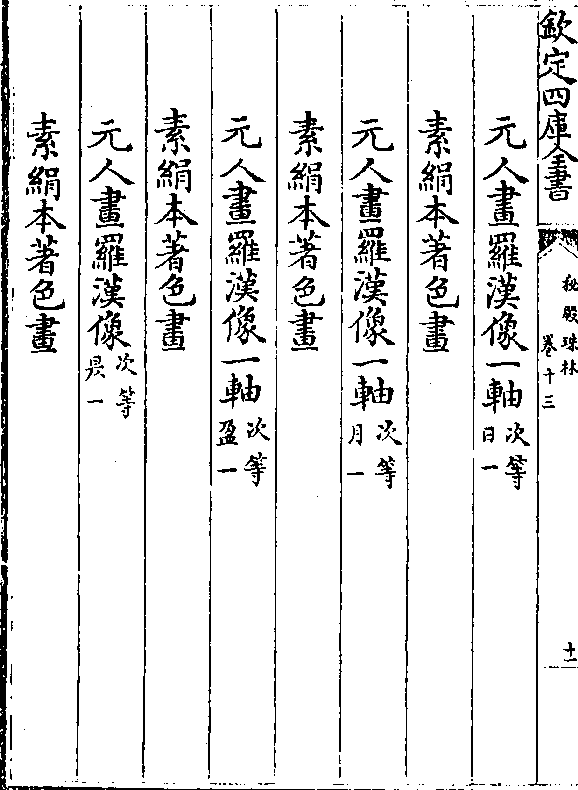 欽定四庫全書
秘殿珠林
卷十三
十一
元人畫羅漢像一軸次等日一
素絹本著色畫
元人畫羅漢像一軸次等月一
素絹本著色畫
元人畫羅漢像一軸次等盈一
素絹本著色畫
元人畫羅漢像次等昃一
素絹本著色畫